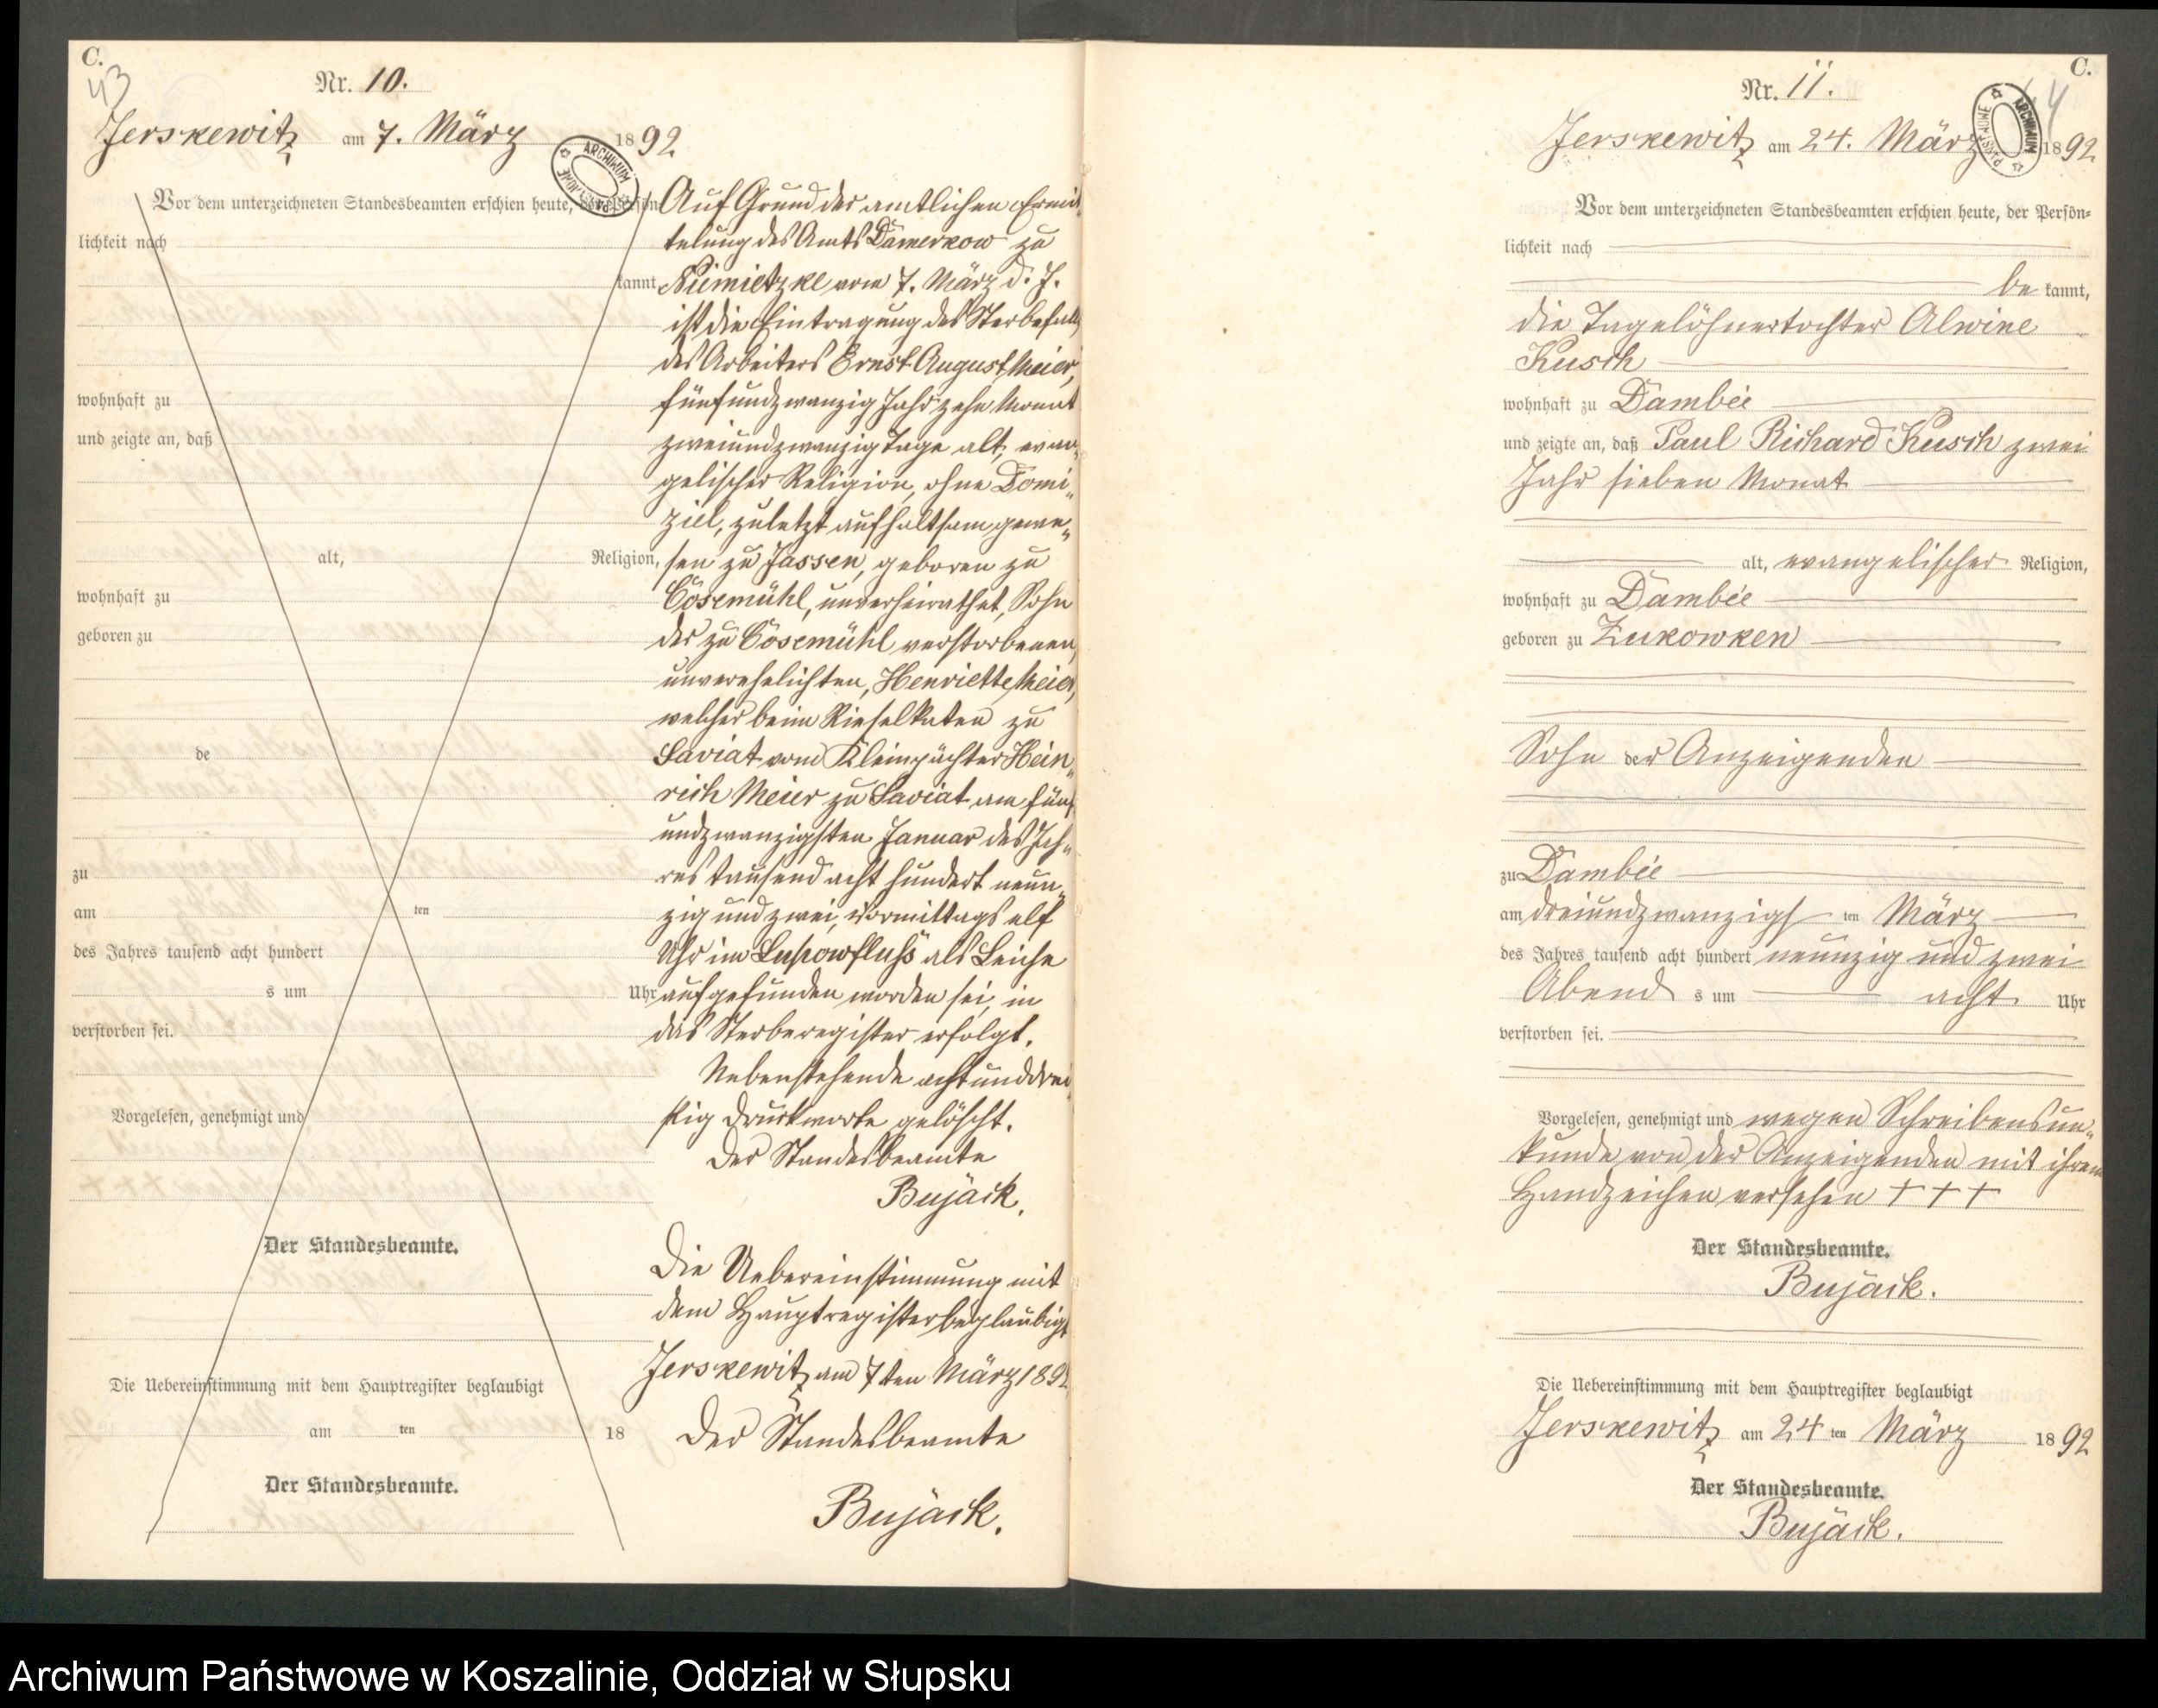 C.
43
Nr. 10.
Jerskewitz am 7. März 1892
Vor dem unterzeichneten Standesbeamten erschien heute, der Persön-
lichkeit nach
kannt,
wohnhaft zu
und zeigte an, daß
alt, Religion,
wohnhaft zu
geboren zu
de
zu
am ten
des Jahres tausend acht hundert
s um Uhr
verstorben sei.
Vorgelesen, genehmigt und
Der Standesbeamte.
Die Uebereinstimmung mit dem Hauptregister beglaubigt
am ten 18
Der Standesbeamte.
Auf Grund der amtlichen Ermit-
telung des Amts Damerkow zu
Niemietzke vom 7. März d. J.
ist die Eintragung des Sterbefalls
des Arbeiters Ernst August Meier,
fünfundzwanzig Jahr zehn Monat
zweiundzwanzig Tage alt, evan-
gelischer Religion, ohne Domi-
ziel, zuletzt aufhaltsam gewe-
sen zu Jassen, geboren zu
Cösemühl, unverheirathet, Sohn
der zu Cösemühl verstorbenen,
unverehelichten, Henriette Meier,
welcher beim Rieselkaten zu
Saviat vom Kleinpächter Hein-
rich Meier zu Saviat am fünf
undzwanzigsten Januar des Jah-
res tausend acht hundert neun-
zig und zwei, Vormittags elf
Uhr im Lupowfluß als Leiche
aufgefunden worden sei, in
das Sterberegister erfolgt.
Nebenstehende achtunddrei
ßig Druckworte gelöscht.
Der Standesbeamte
Bujack.
Die Uebereinstimmung mit
dem Hauptregister beglaubigt
Jerskewitz am 7ten März 1892
Der Standesbeamte
Bujack.
C.
44
Nr. 11.
Jerskewitz am 24. März 1892
ARCHIWUM PAŃSTWOWE
Vor dem unterzeichneten Standesbeamten erschien heute, der Persön-
lichkeit nach
be kannt,
die Tagelöhnertochter Alwine
Kusch
wohnhaft zu Dambée
und zeigte an, daß Paul Richard Kusch zwei
Jahr sieben Monat
alt, evangelischer Religion,
wohnhaft zu Dambée
geboren zu Zukowken
Sohn der Anzeigenden
zu Dambée
am dreiundzwanzigsten März
des Jahres tausend acht hundert neunzig und zwei
Abends um acht Uhr
verstorben sei.
Vorgelesen, genehmigt und wegen Schreibensun-
kunde von der Anzeigenden mit ihrem
Handzeichen versehen + + +
Der Standesbeamte.
Bujack.
Die Uebereinstimmung mit dem Hauptregister beglaubigt
Jerskewitz am 24 ten März 1892
Der Standesbeamte.
Bujack.
Archiwum Państwowe w Koszalinie, Oddział w Słupsku